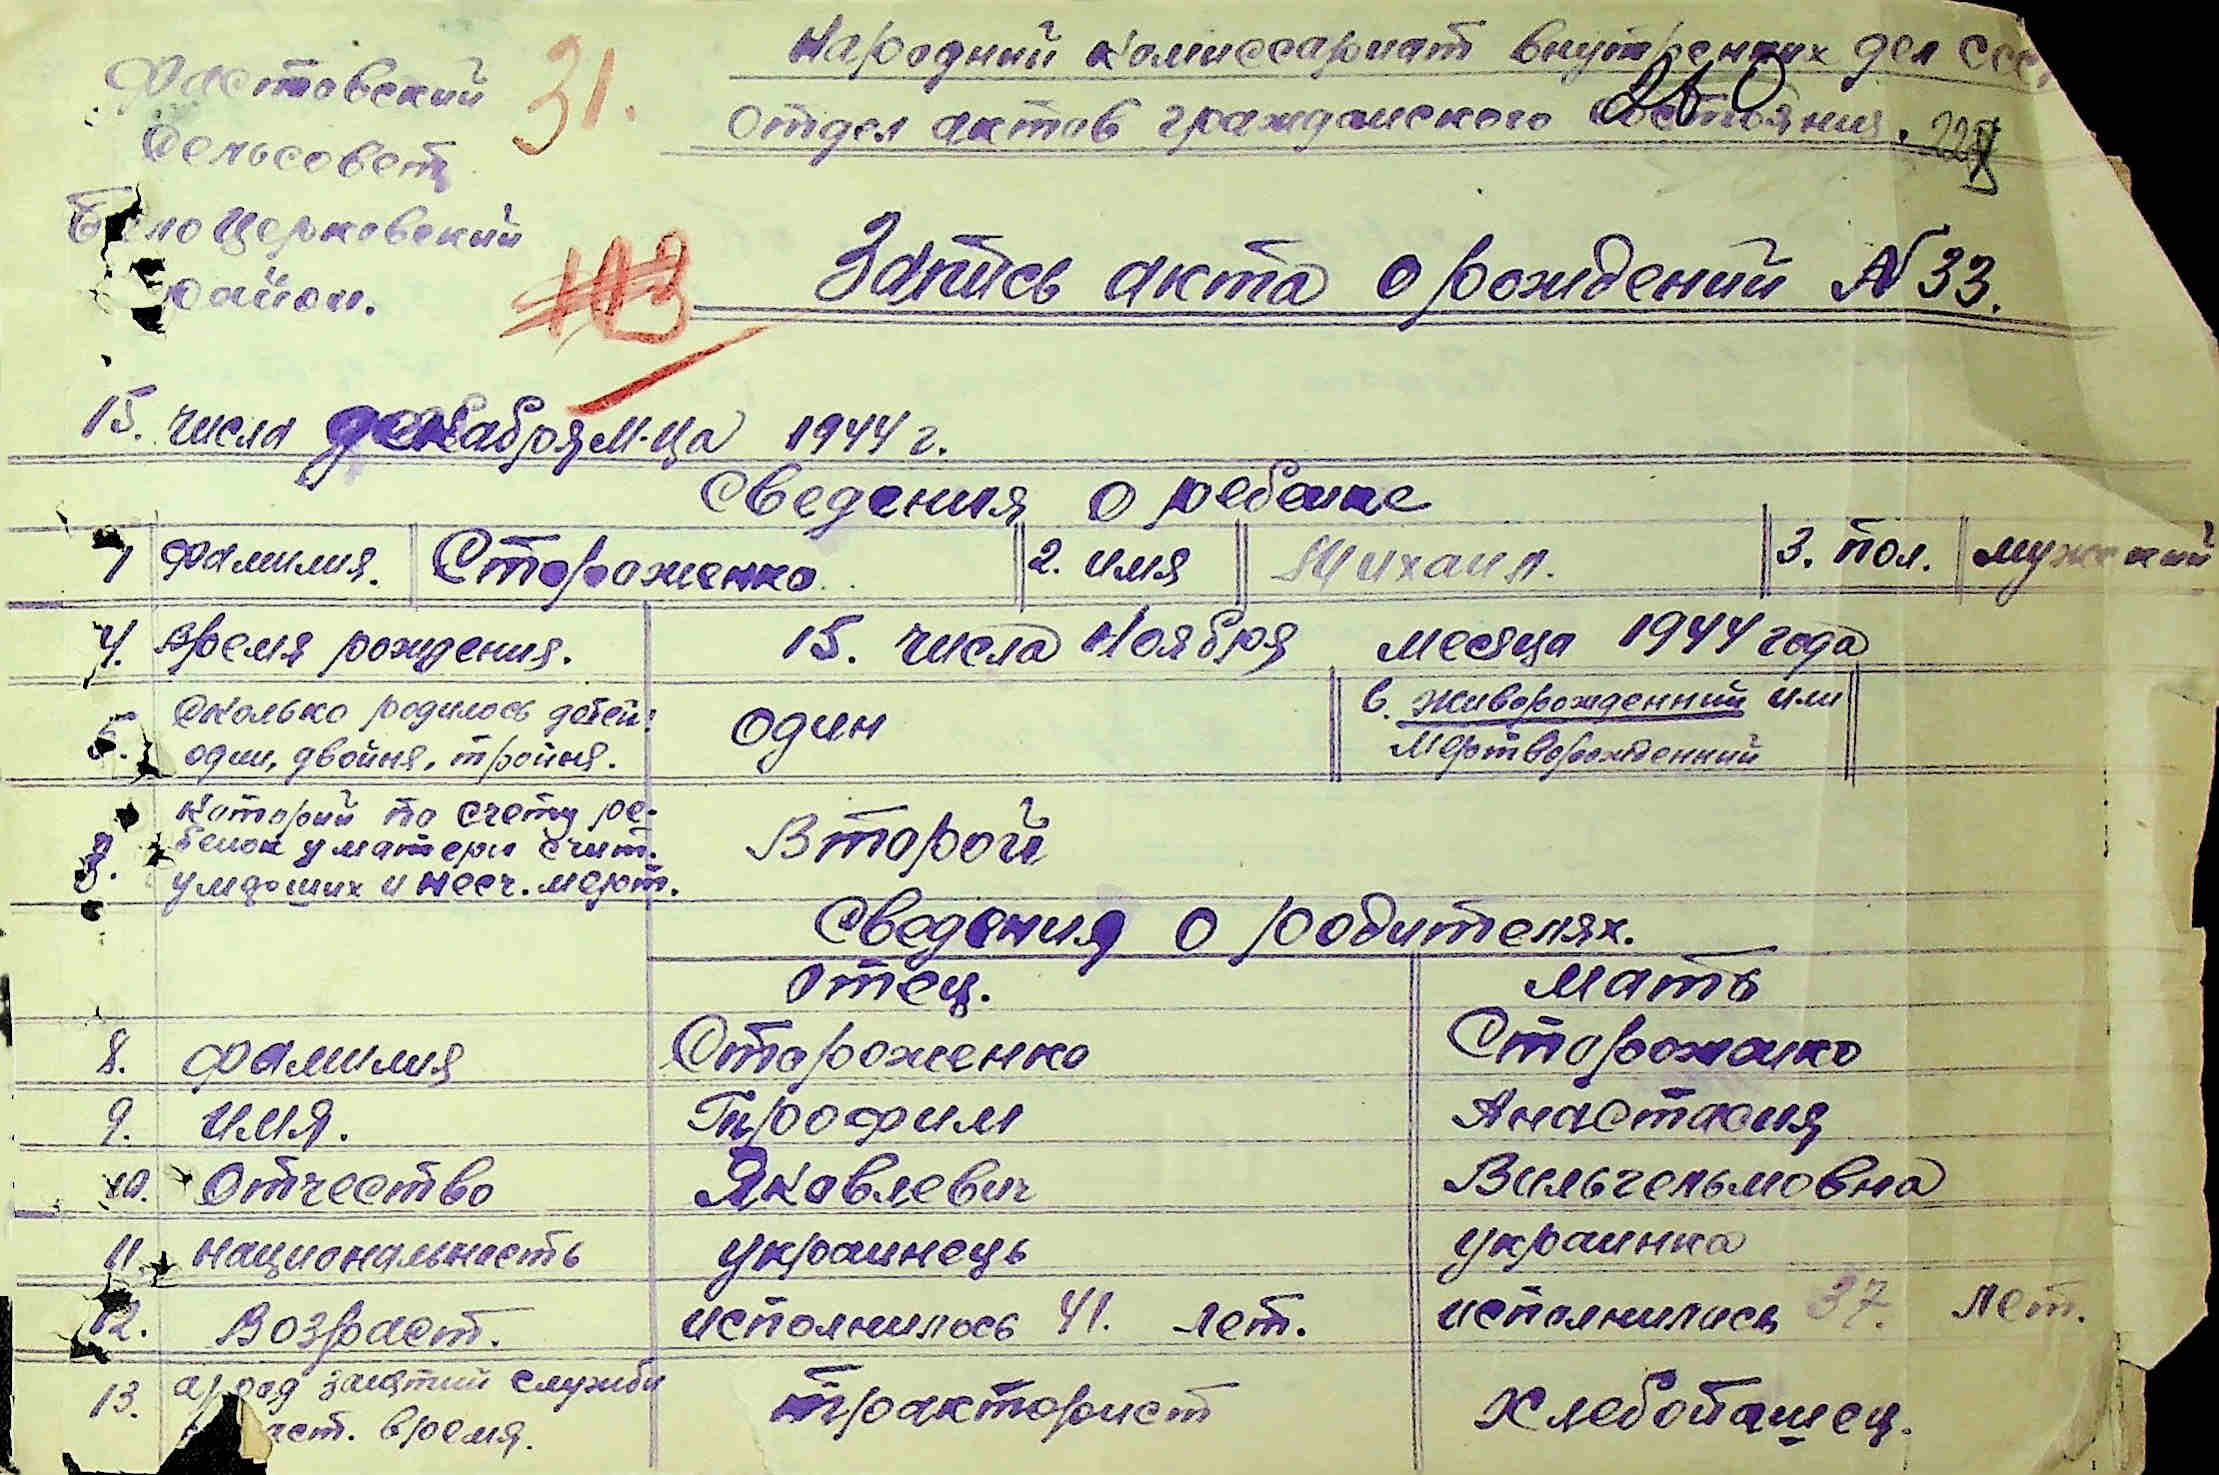 Фастовский
Сельсовет
Бело Церковский
район.
31.
Народний комиссариат внутренних дел ССС
Отдел актов гражданского состояния.
113
Запись акта о рождений № 33.
15. числа декабря м-ца 1944 г.
Сведения о ребенке
1 фамилия. Стороженко 2. имя Михаил. 3. пол. мужский
4. Время рождения. 15. числа Ноября месяца 1944 года
5. Сколько родилось детей: один, двойня, тройня. один
6. живорожденний или
мертворожденний
который по счету ре-
бенок у матери счит.
умерших и несч. мерт. Второй
Сведения о родителях.
Отец. Мать
8. фамилия Стороженко Стороженко
9. имя. Трофим Анастасия
10. Отчество Яковлевич Вильгельмовна
11. национальность украинець украинка
12. Возраст. исполнилось 41. лет. исполнилась 37. лет.
13. а) род занятий служби
аст. время. тракторист хлебопашец.